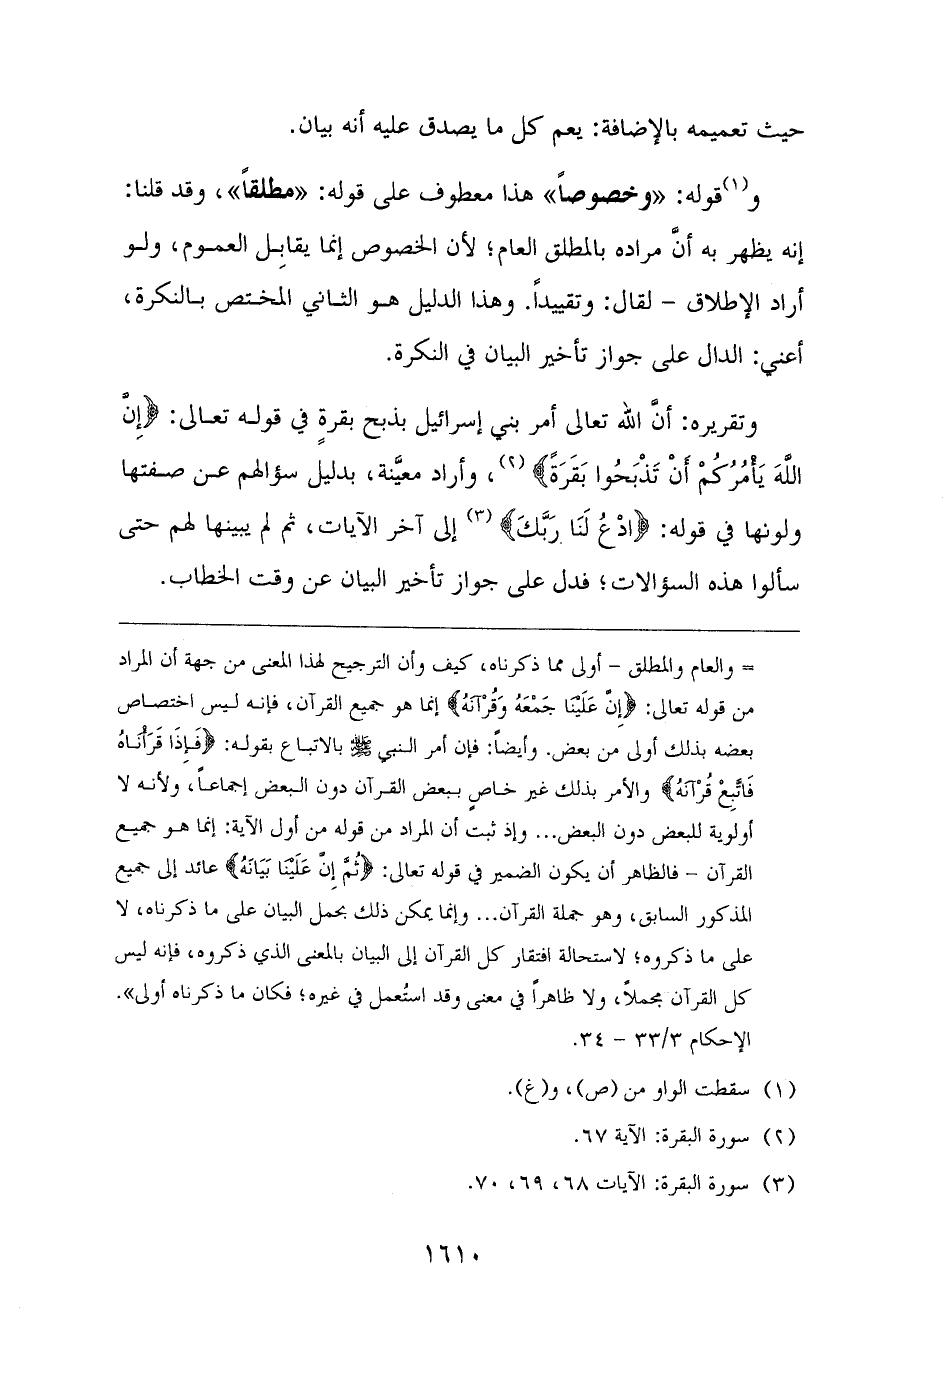 حيث تعميمه بالإضافة: يعم كل ما يصدق عليه أنه بيان.
و(١)قوله: «وخصوصاً» هذا معطوف على قوله: «مطلقاً»، وقد قلنا:
إنه يظهر به أنَّ مراده بالمطلق العام؛ لأن الخصوص إنما يقابِل العموم، ولو
أراد الإطلاق – لقال: وتقييداً. وهذا الدليل هو الثاني المختص بالنكرة،
أعني: الدال على جواز تأخير البيان في النكرة.
وتقريره: أنَّ الله تعالى أمر بني إسرائيل بذبح بقرةٍ في قوله تعالى: ﴿إِنَّ
اللَّهَ يَأْمُرُكُمْ أَنْ تَذْبَحُوا بَقَرَةً﴾(٢)، وأراد معيَّنة، بدليل سؤالهم عن صفتها
ولونها في قوله: ﴿ادْعُ لَنَا رَبَّكَ﴾(٣) إلى آخر الآيات، ثم لم يبينها لهم حتى
سألوا هذه السؤالات؛ فدل على جواز تأخير البيان عن وقت الخطاب.
= والعام والمطلق – أولى مما ذكرناه، كيف وأن الترجيح لهذا المعنى من جهة أن المراد
من قوله تعالى: ﴿إِنَّ عَلَيْنَا جَمْعَهُ وَقُرْآنَهُ﴾ إنما هو جميع القرآن، فإنه ليس اختصاص
بعضه بذلك أولى من بعض. وأيضاً: فإن أمر النبي ﷺ بالاتباع بقوله: ﴿فَإِذَا قَرَأْنَاهُ
فَاتَّبِعْ قُرْآنَهُ﴾ والأمر بذلك غير خاصٍ ببعض القرآن دون البعض إجماعاً، ولأنه لا
أولوية للبعض دون البعض... وإذ ثبت أن المراد من قوله من أول الآية: إنما هو جميع
القرآن – فالظاهر أن يكون الضمير في قوله تعالى: ﴿ثُمَّ إِنَّ عَلَيْنَا بَيَانَهُ﴾ عائد إلى جميع
المذكور السابق، وهو جملة القرآن... وإنما يمكن ذلك بحمل البيان على ما ذكرناه، لا
على ما ذكروه؛ لاستحالة افتقار كل القرآن إلى البيان بالمعنى الذي ذكروه، فإنه ليس
كل القرآن مجملاً، ولا ظاهراً في معنى وقد استُعمل في غيره؛ فكان ما ذكرناه أولى».
الإحكام ٣٣/٣ – ٣٤.
(١) سقطت الواو من (ص)، و(غ).
(٢) سورة البقرة: الآية ٦٧.
(٣) سورة البقرة: الآيات ٦٨، ٦٩، ٧٠.
١٦١٠